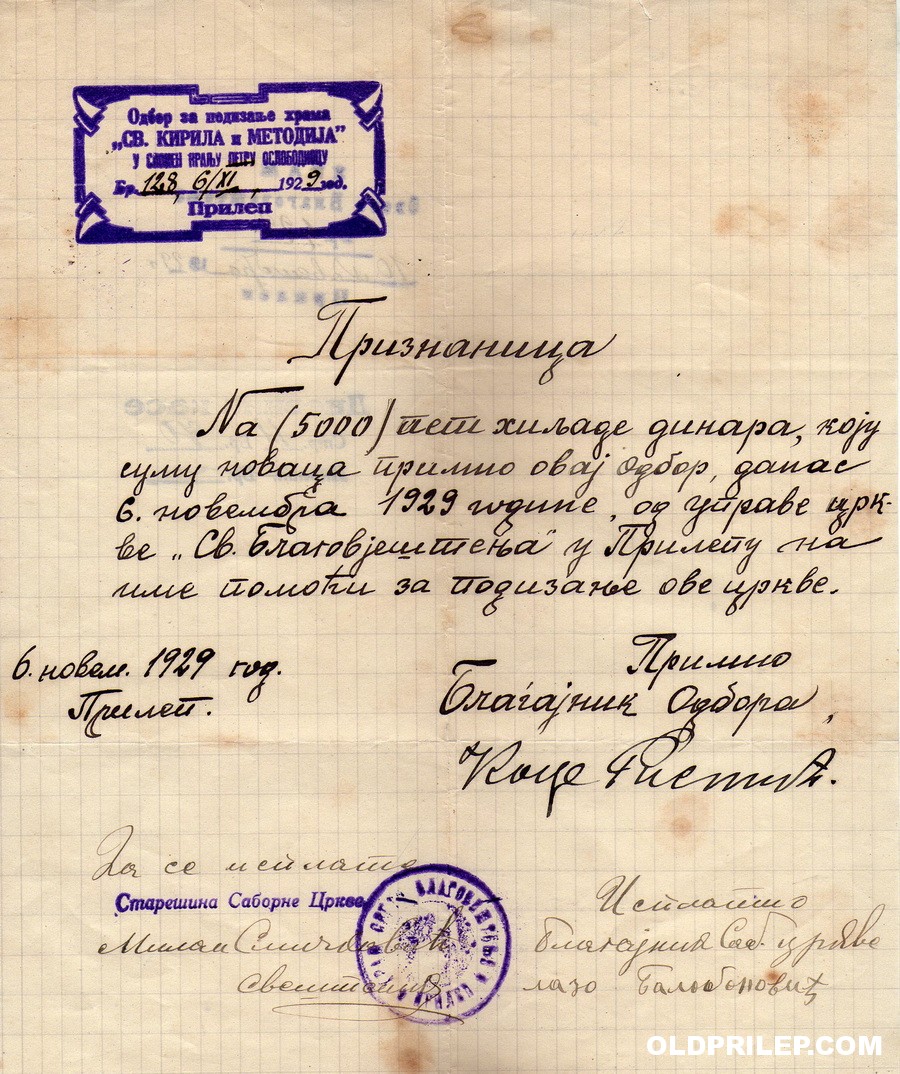 Одбор за подизање храма
„СВ. КИРИЛА и МЕТОДИЈА"
У СПОМЕН КРАЉУ ПЕТРУ ОСЛОБОДИОЦУ
Бр. 128, 6/XI, 1929 год.
Прилеп
Признаница
На (5000) пет хиљаде динара, коју
суму новаца примио овај Одбор, данас
6. новембра 1929 године, од управе црк-
ве „Св. Благовјештења" у Прилепу на
име помоћи за подизање ове цркве.
6. новем. 1929 год.
Прилеп.
Примио
Благајник Одбора,
Коце Ристић.
Да се исплати
Старешина Саборне Цркве
Милан
свештеник
БЛАГОВЕШТЕЊЕ
Исплатио
Благајник Саб. цркве
лазо
OLDPRILEP.COM